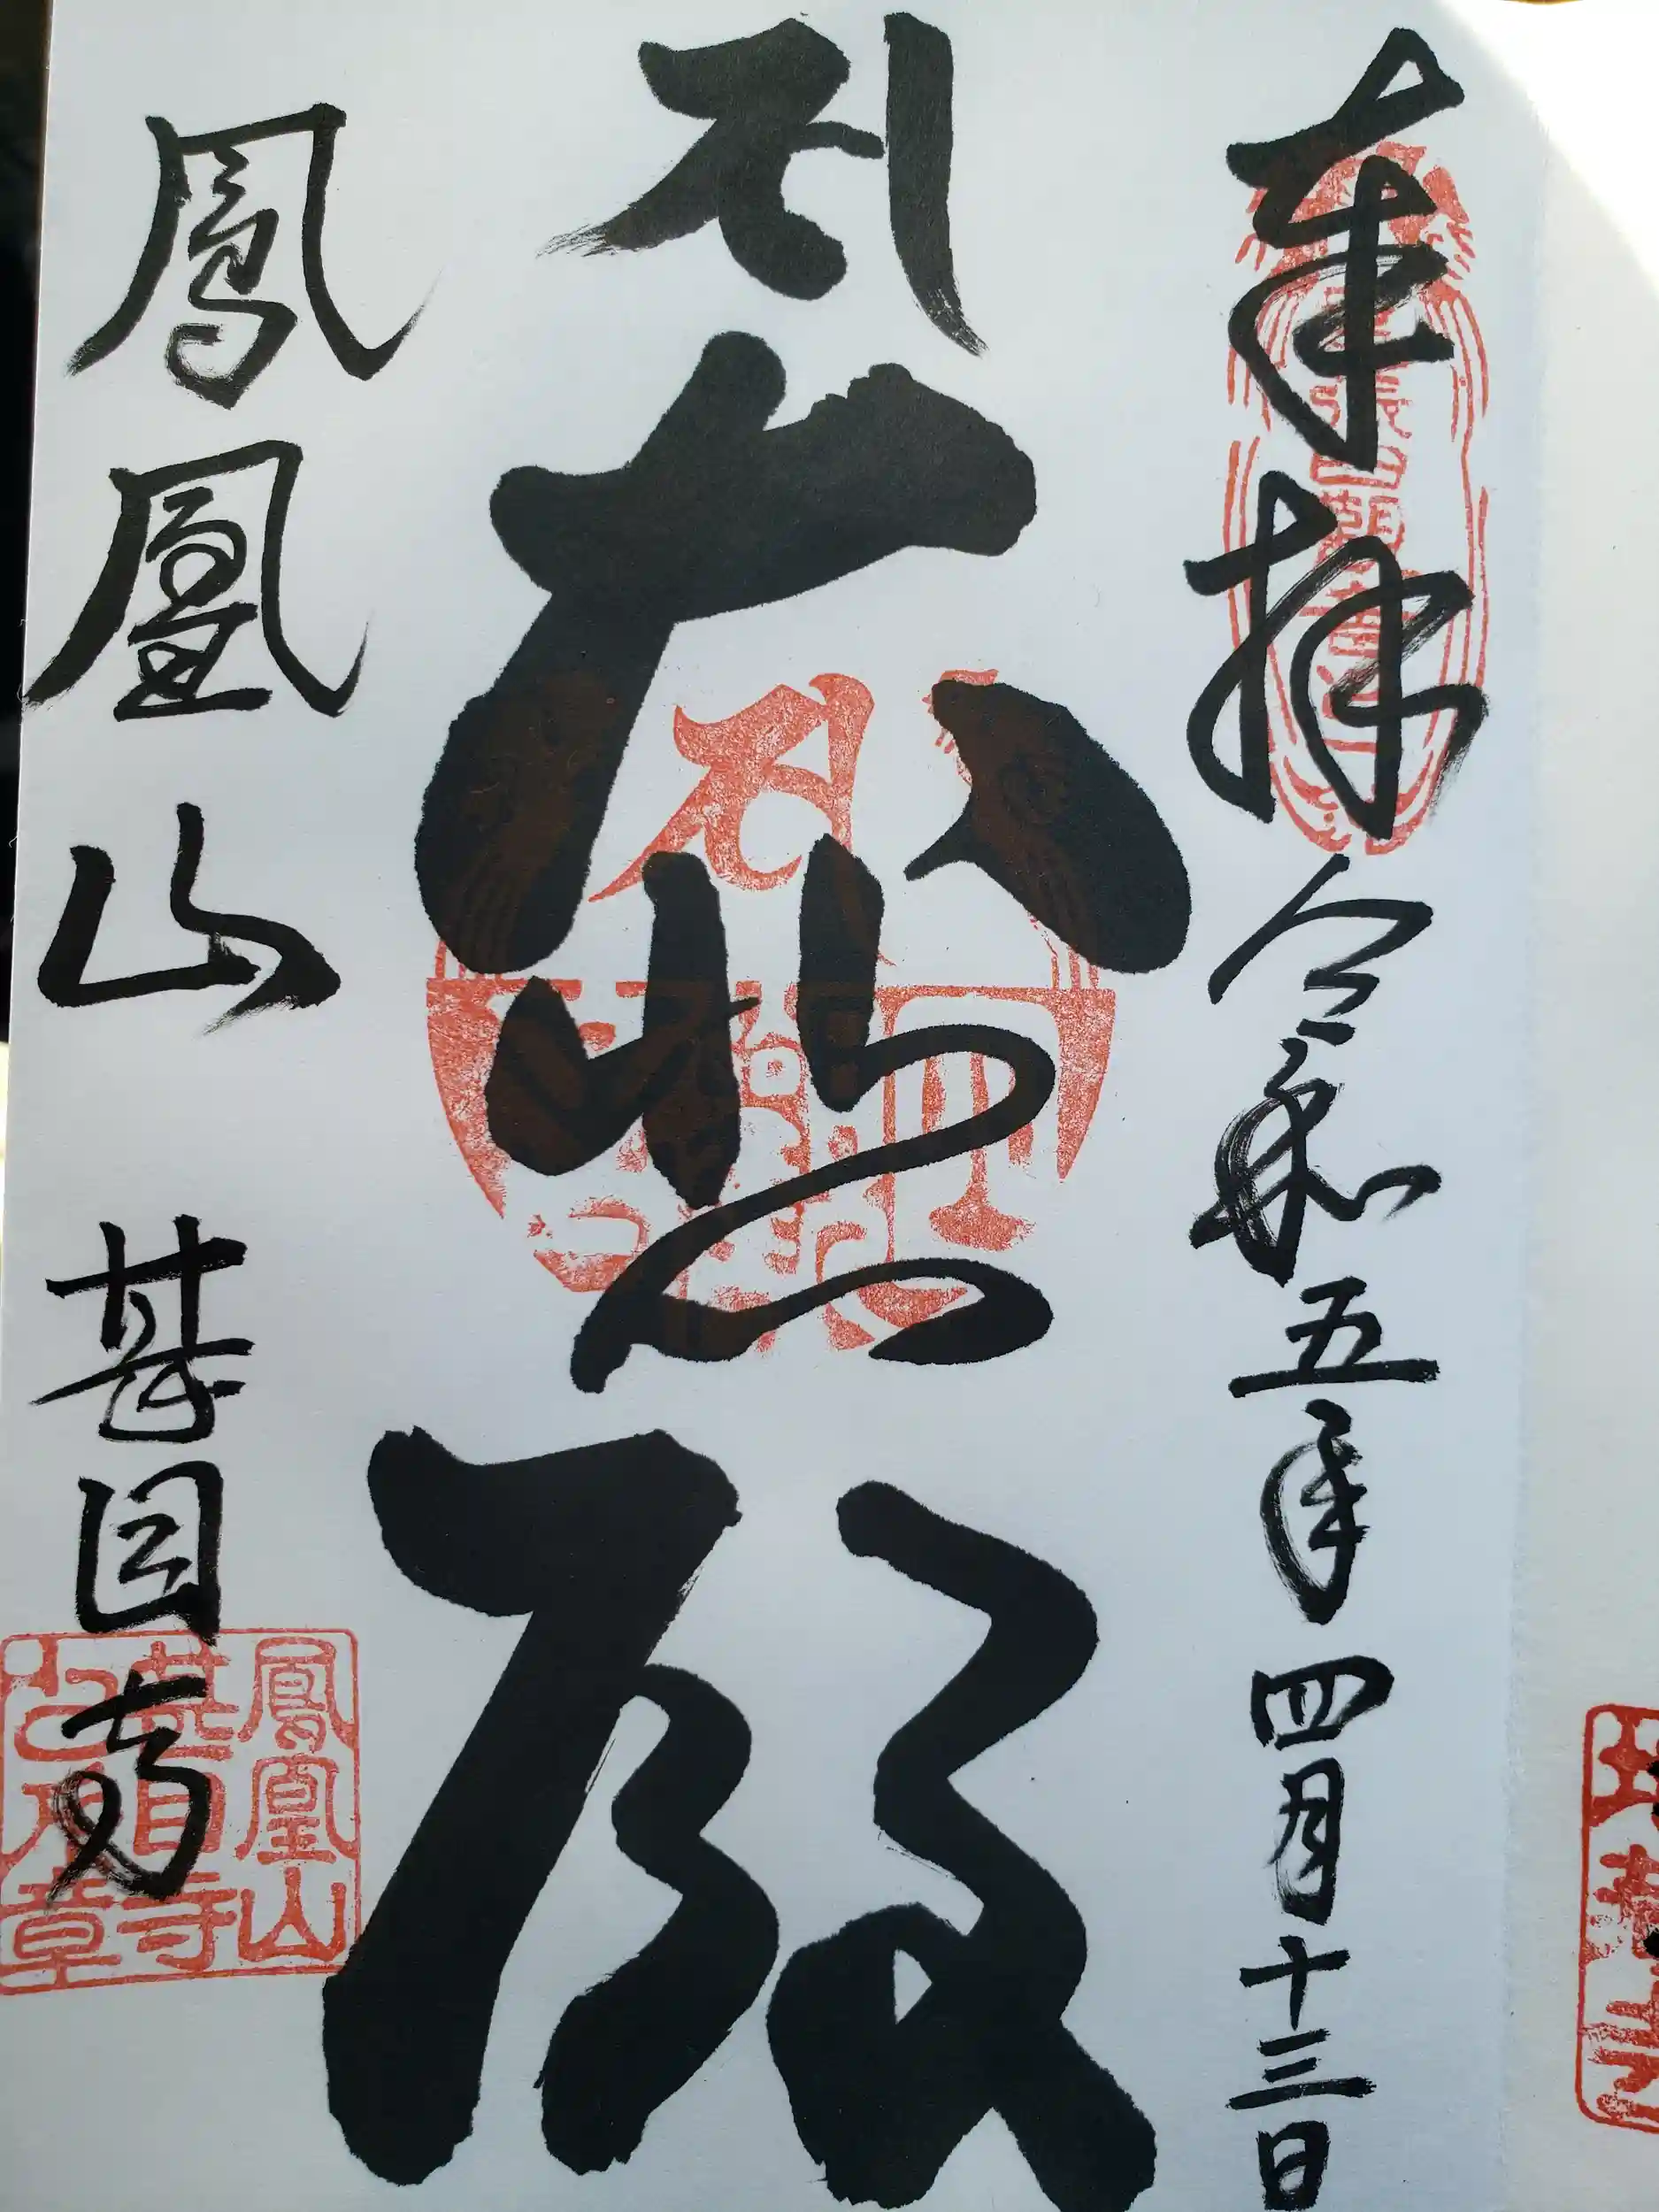 奉拝 令和五年四月十三日
स
大悲殿
鳳凰山 甚目寺
鳳凰山
甚目寺